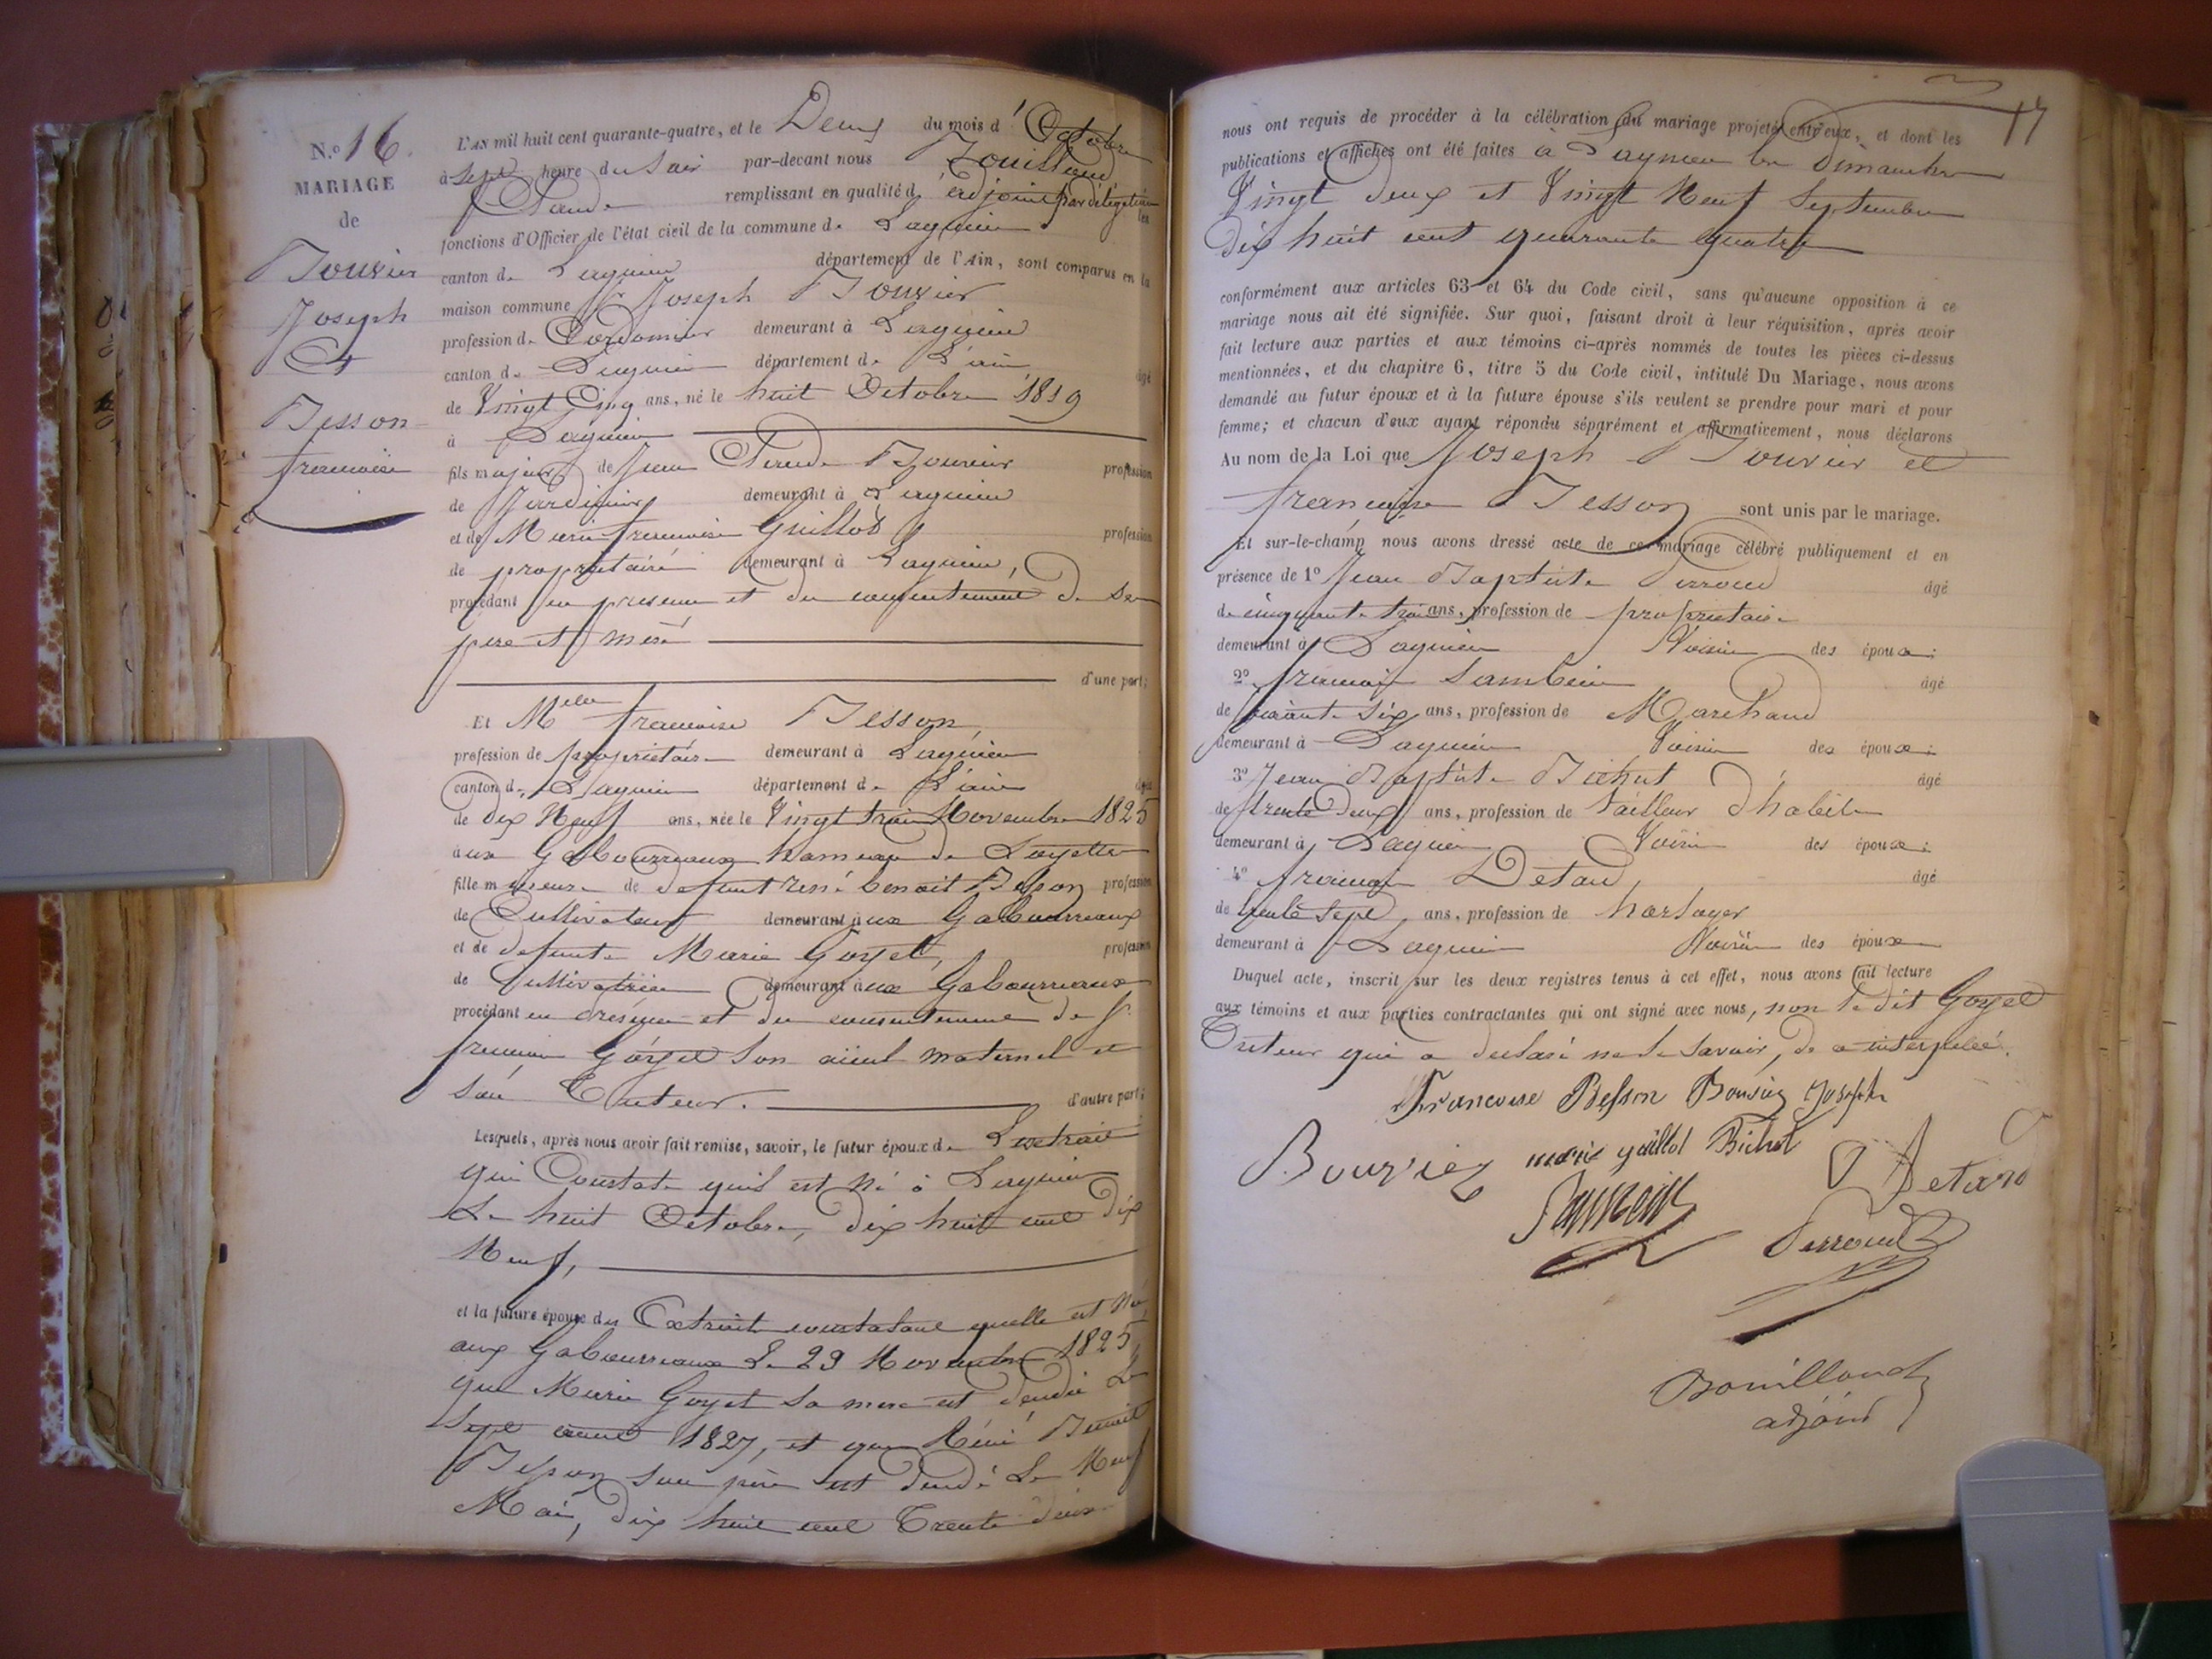 N.º 16.
MARIAGE
de
Bouvier
Joseph
Et
Besson
francoise
L'AN mil huit cent quarante-quatre, et le Deux du mois d'Octobre
à sept heure du Soir par-devant nous Bouilloud
Claude remplissant en qualité d'adjoint par délégation les
fonctions d'Officier de l'état civil de la commune de Lagnieu
canton de Lagnieu département de l'Ain, sont comparus en la
maison commune Sr Joseph Bouvier
profession de Cordonnier demeurant à Lagnieu
canton de Lagnieu département de L'ain âgé
de Vingt Cinq ans, né le huit Octobre 1819
à Lagnieu
fils majeur de Jean Claude Bouvier profession
de Jardinier demeurant à Lagnieu
et de Marie francoise Guillot profession
de propriétaire demeurant à Lagnieu,
procédant en presence et du consentement de ses
pere et mere
d'une part;
Et Melle francoise Besson,
profession de propriétaire demeurant à Lagnieu
canton de Lagnieu département de L'ain âgée
de Dix Neuf ans, née le Vingt trois Novembre 1825
aux Gaboureaux hameau de Loyettes
fille mineure de defunt rené benoit Besson profession
de Cultivateur demeurant aux Gaboureaux
et de defunte Marie Goyet, profession
de Cultivatrice demeurant aux Gaboureaux
procédant en présence et du consentement de Sr
francois Goyet son aïeul maternel et
son Tuteur. d'autre part;
Lesquels, après nous avoir fait remise, savoir, le futur époux de L'extrait
qui Constate quil est Né à Lagnieu
Le huit Octobre, dix huit cent dix
Neuf,
et la future épouse des Extraits constatant quelle est Née
aux Gaboureaux Le 23 Novembre 1825,
que Marie Goyet sa mere est décédée Le
Sept 1827, et que Réné Benoit
Besson son père est décédé Le Neuf
Mai, dix huit cent Trente deux
17
nous ont requis de procéder à la célébration du mariage projeté entr'eux, et dont les
publications et affiches ont été faites à Lagnieu les dimanches
Vingt deux et Vingt Neuf Septembre
Dix huit cent quarante quatre
conformément aux articles 63 et 64 du Code civil, sans qu'aucune opposition à ce
mariage nous ait été signifiée. Sur quoi, faisant droit à leur réquisition, après avoir
fait lecture aux parties et aux témoins ci-après nommés de toutes les pièces ci-dessus
mentionnées, et du chapitre 6, titre 5 du Code civil, intitulé Du Mariage, nous avons
demandé au futur époux et à la future épouse s'ils veulent se prendre pour mari et pour
femme; et chacun d'eux ayant répondu séparément et affirmativement, nous déclarons
Au nom de la Loi que Joseph Bouvier et
francoise Besson sont unis par le mariage.
Et sur-le-champ nous avons dressé acte de ce mariage célébré publiquement et en
présence de 1º Jean Baptiste Perroud âgé
de cinquante trois ans, profession de propriétaire
demeurant à Lagnieu Voisin des époux;
2º francois âgé
de six ans, profession de Marchand
demeurant à Lagnieu Voisin des époux;
3º Jean Baptiste Bichat âgé
de trente Deux ans, profession de tailleur d'habits
demeurant à Lagnieu Voisin des époux;
4º francois Détard, âgé
de trente Sept ans, profession de horloger
demeurant à Lagnieu Voisin des époux
Duquel acte, inscrit sur les deux registres tenus à cet effet, nous avons fait lecture
aux témoins et aux parties contractantes qui ont signé avec nous, non le dit Goyet
Tuteur qui a déclaré ne le savoir, de ce interpellé.
Francoise Besson Bouvier Joseph
Bouvier marie guillot Bichat Detard
Perroud
Bouilloud
adjoint